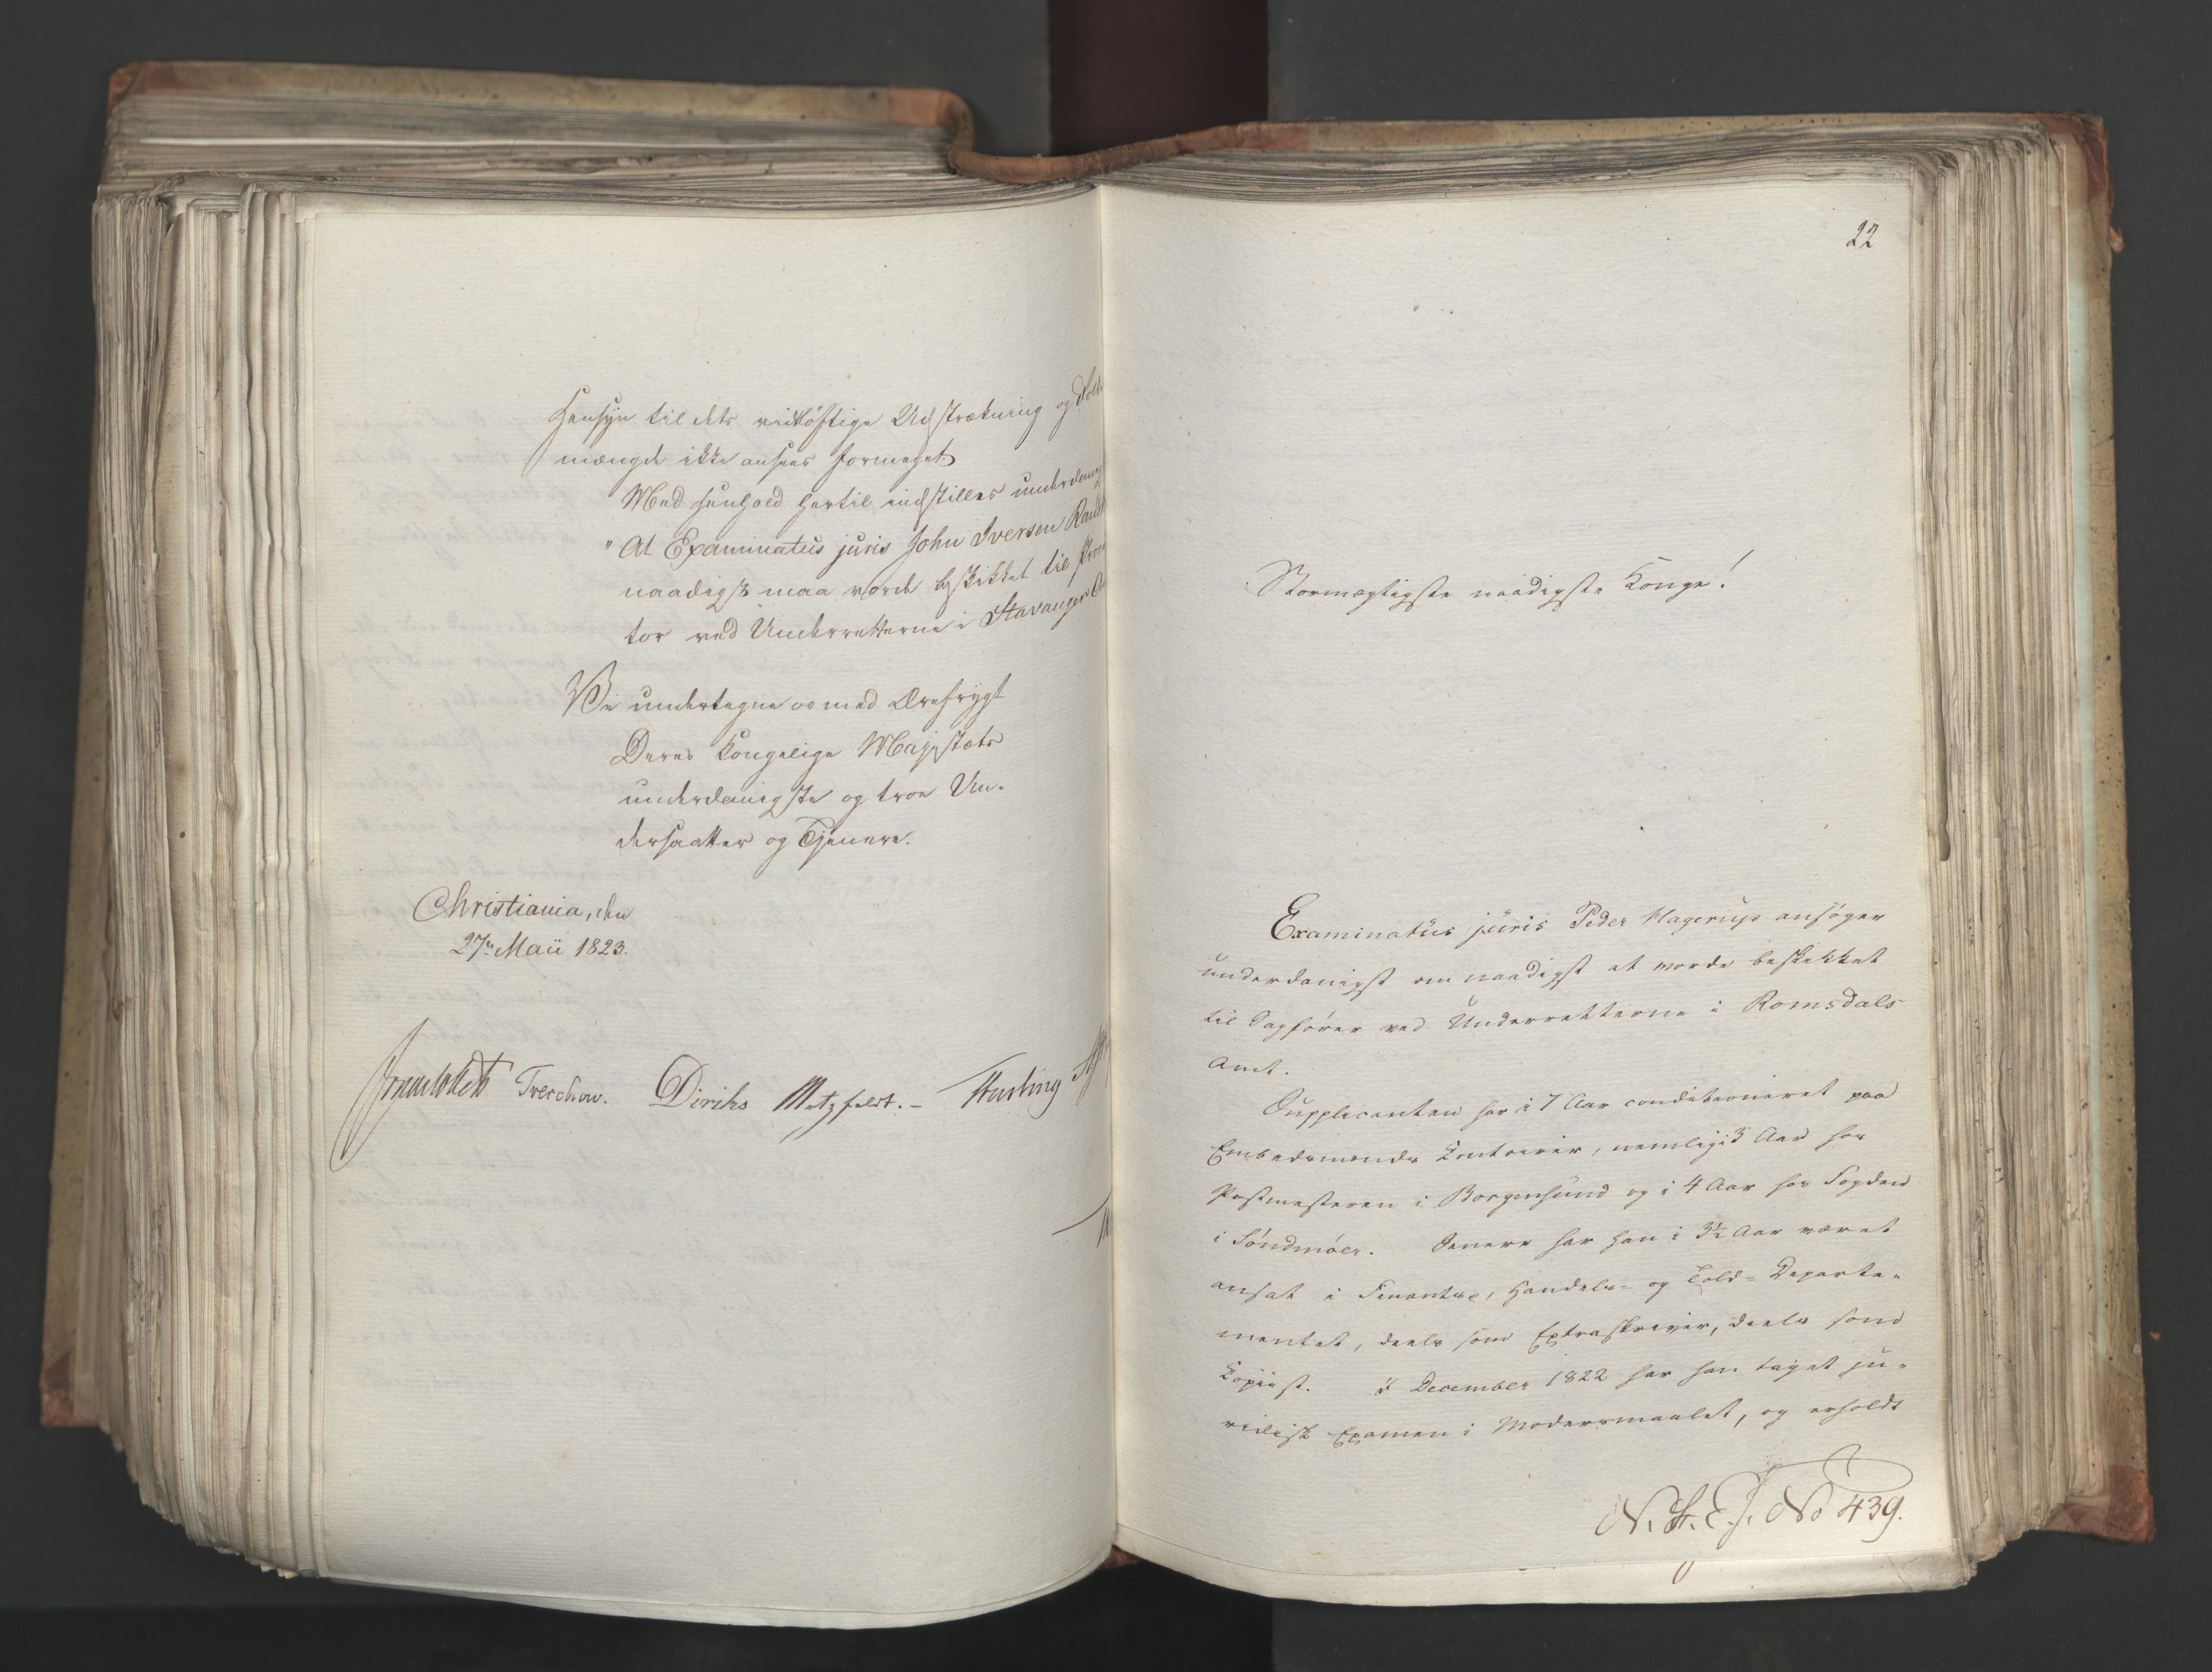 Hensyn til dets vidtløftige Udstrækning og Folke
mængde ikke ansees formeget.
Med Henhold hertil indstilles underdanig
" At Examinatus juris John Iversen
naadigst maa vorde beskikket til Procu
tor ved Underretterne i Stavanger
Vi undertegne os med Ærefrygt
Deres Kongelige Majestæts
underdanigste og troe Un-
dersaatter og Tjenere.
Christiania, den
27de Maii 1823.
Treschow. Diriks Motzfeldt. -
22
Stormægtigste naadigste Konge!
Examinatus juris Peder Hagerup ansøger
underdanigst om naadigst at vorde beskikket
til Sagfører ved Underretterne i Romsdals
Amt.
Supplicanten har i 7 Aar conditioneret paa
Embedsmænds Contoirer, nemlig i 3 Aar hos
Postmesteren i Borgensund og i 4 Aar hos Fogden
i Söndmöer. Senere har han i 3½ Aar været
ansat i Finants-, Handels- og Told-Departe-
mentet, deels som Extraskriver, deels som
Kopiist. I December 1822 har han taget ju-
ridisk Examen i Modersmaalet, og erholdt
N. St. E. J. No 439.